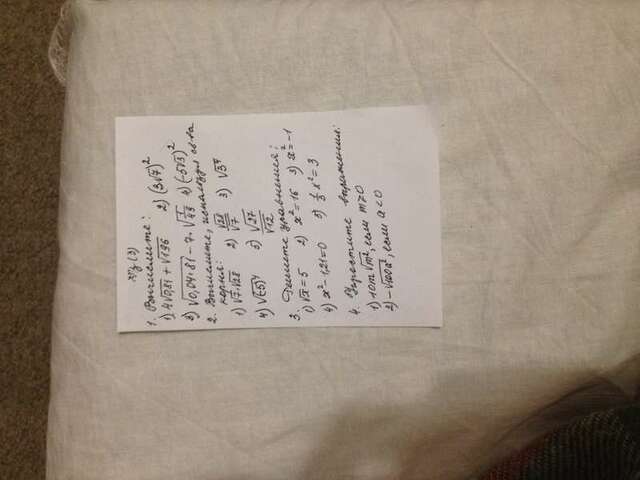 1. Вычислите:
1) 4√0,81 + √196 2) (3√7)²
3) √0,04·81 - 7·√1/49 4) (-5√3)²
2. Вычислите, используя св-ва
корня:
1) √7·√28 2) √28/√7 3) √3⁴
4) √(-5)⁴ 5) √27/√12
3. Решите уравнения:
1) √x = 5 2) x² = 16 3) x² = -1
4) x² - 1,21 = 0 5) 1/3 x² = 3
4. Упростите выражения:
1) 10m√m², если m>0
2) -√100a², если a<0